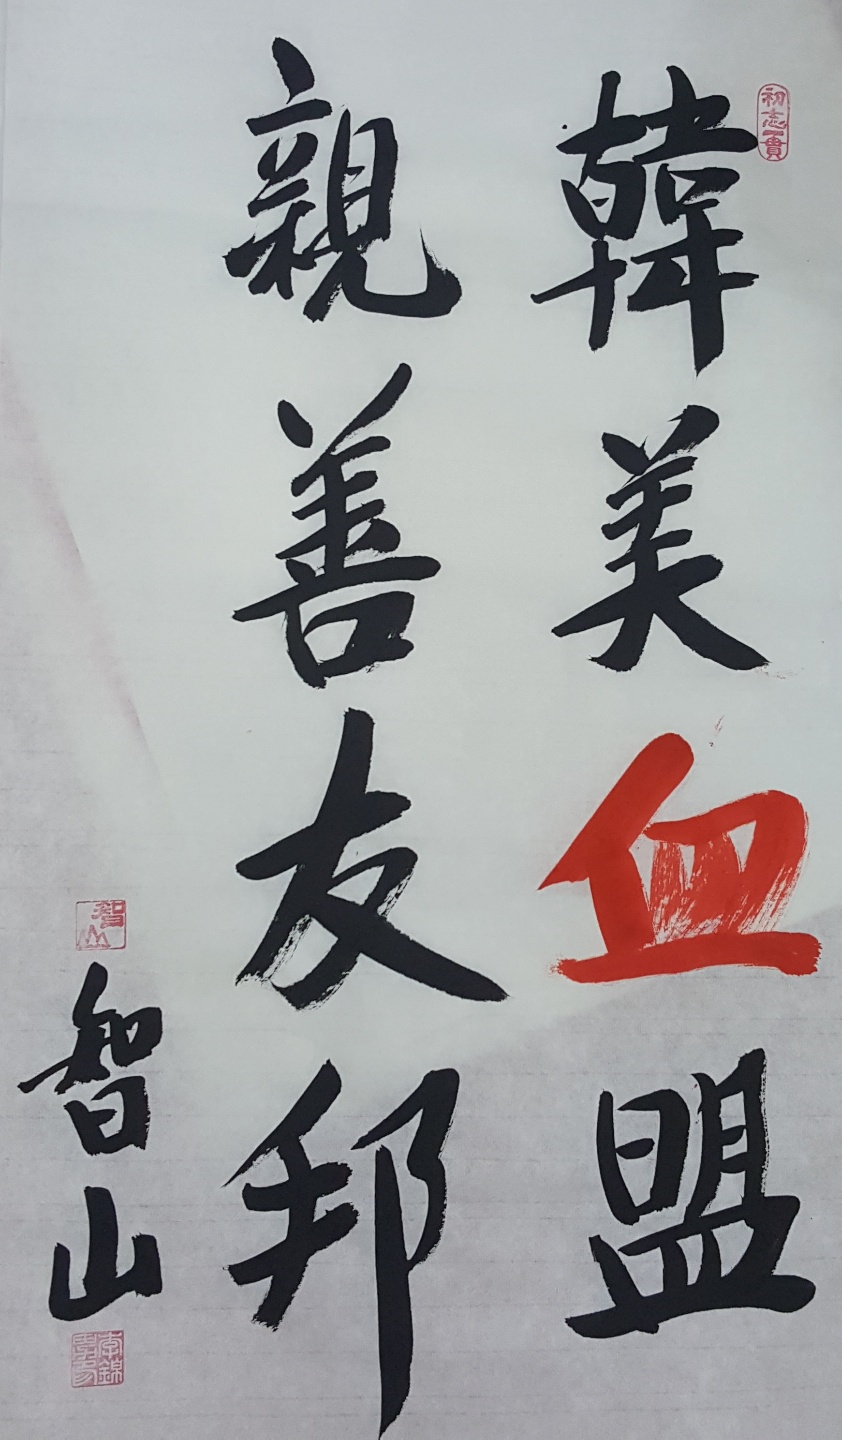 初志一貫
韓美血盟
親善友邦
智山
智山